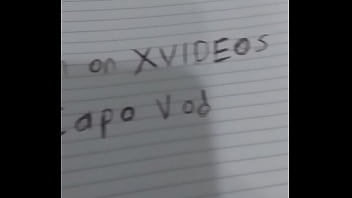 on XVIDEOS
apo Vod